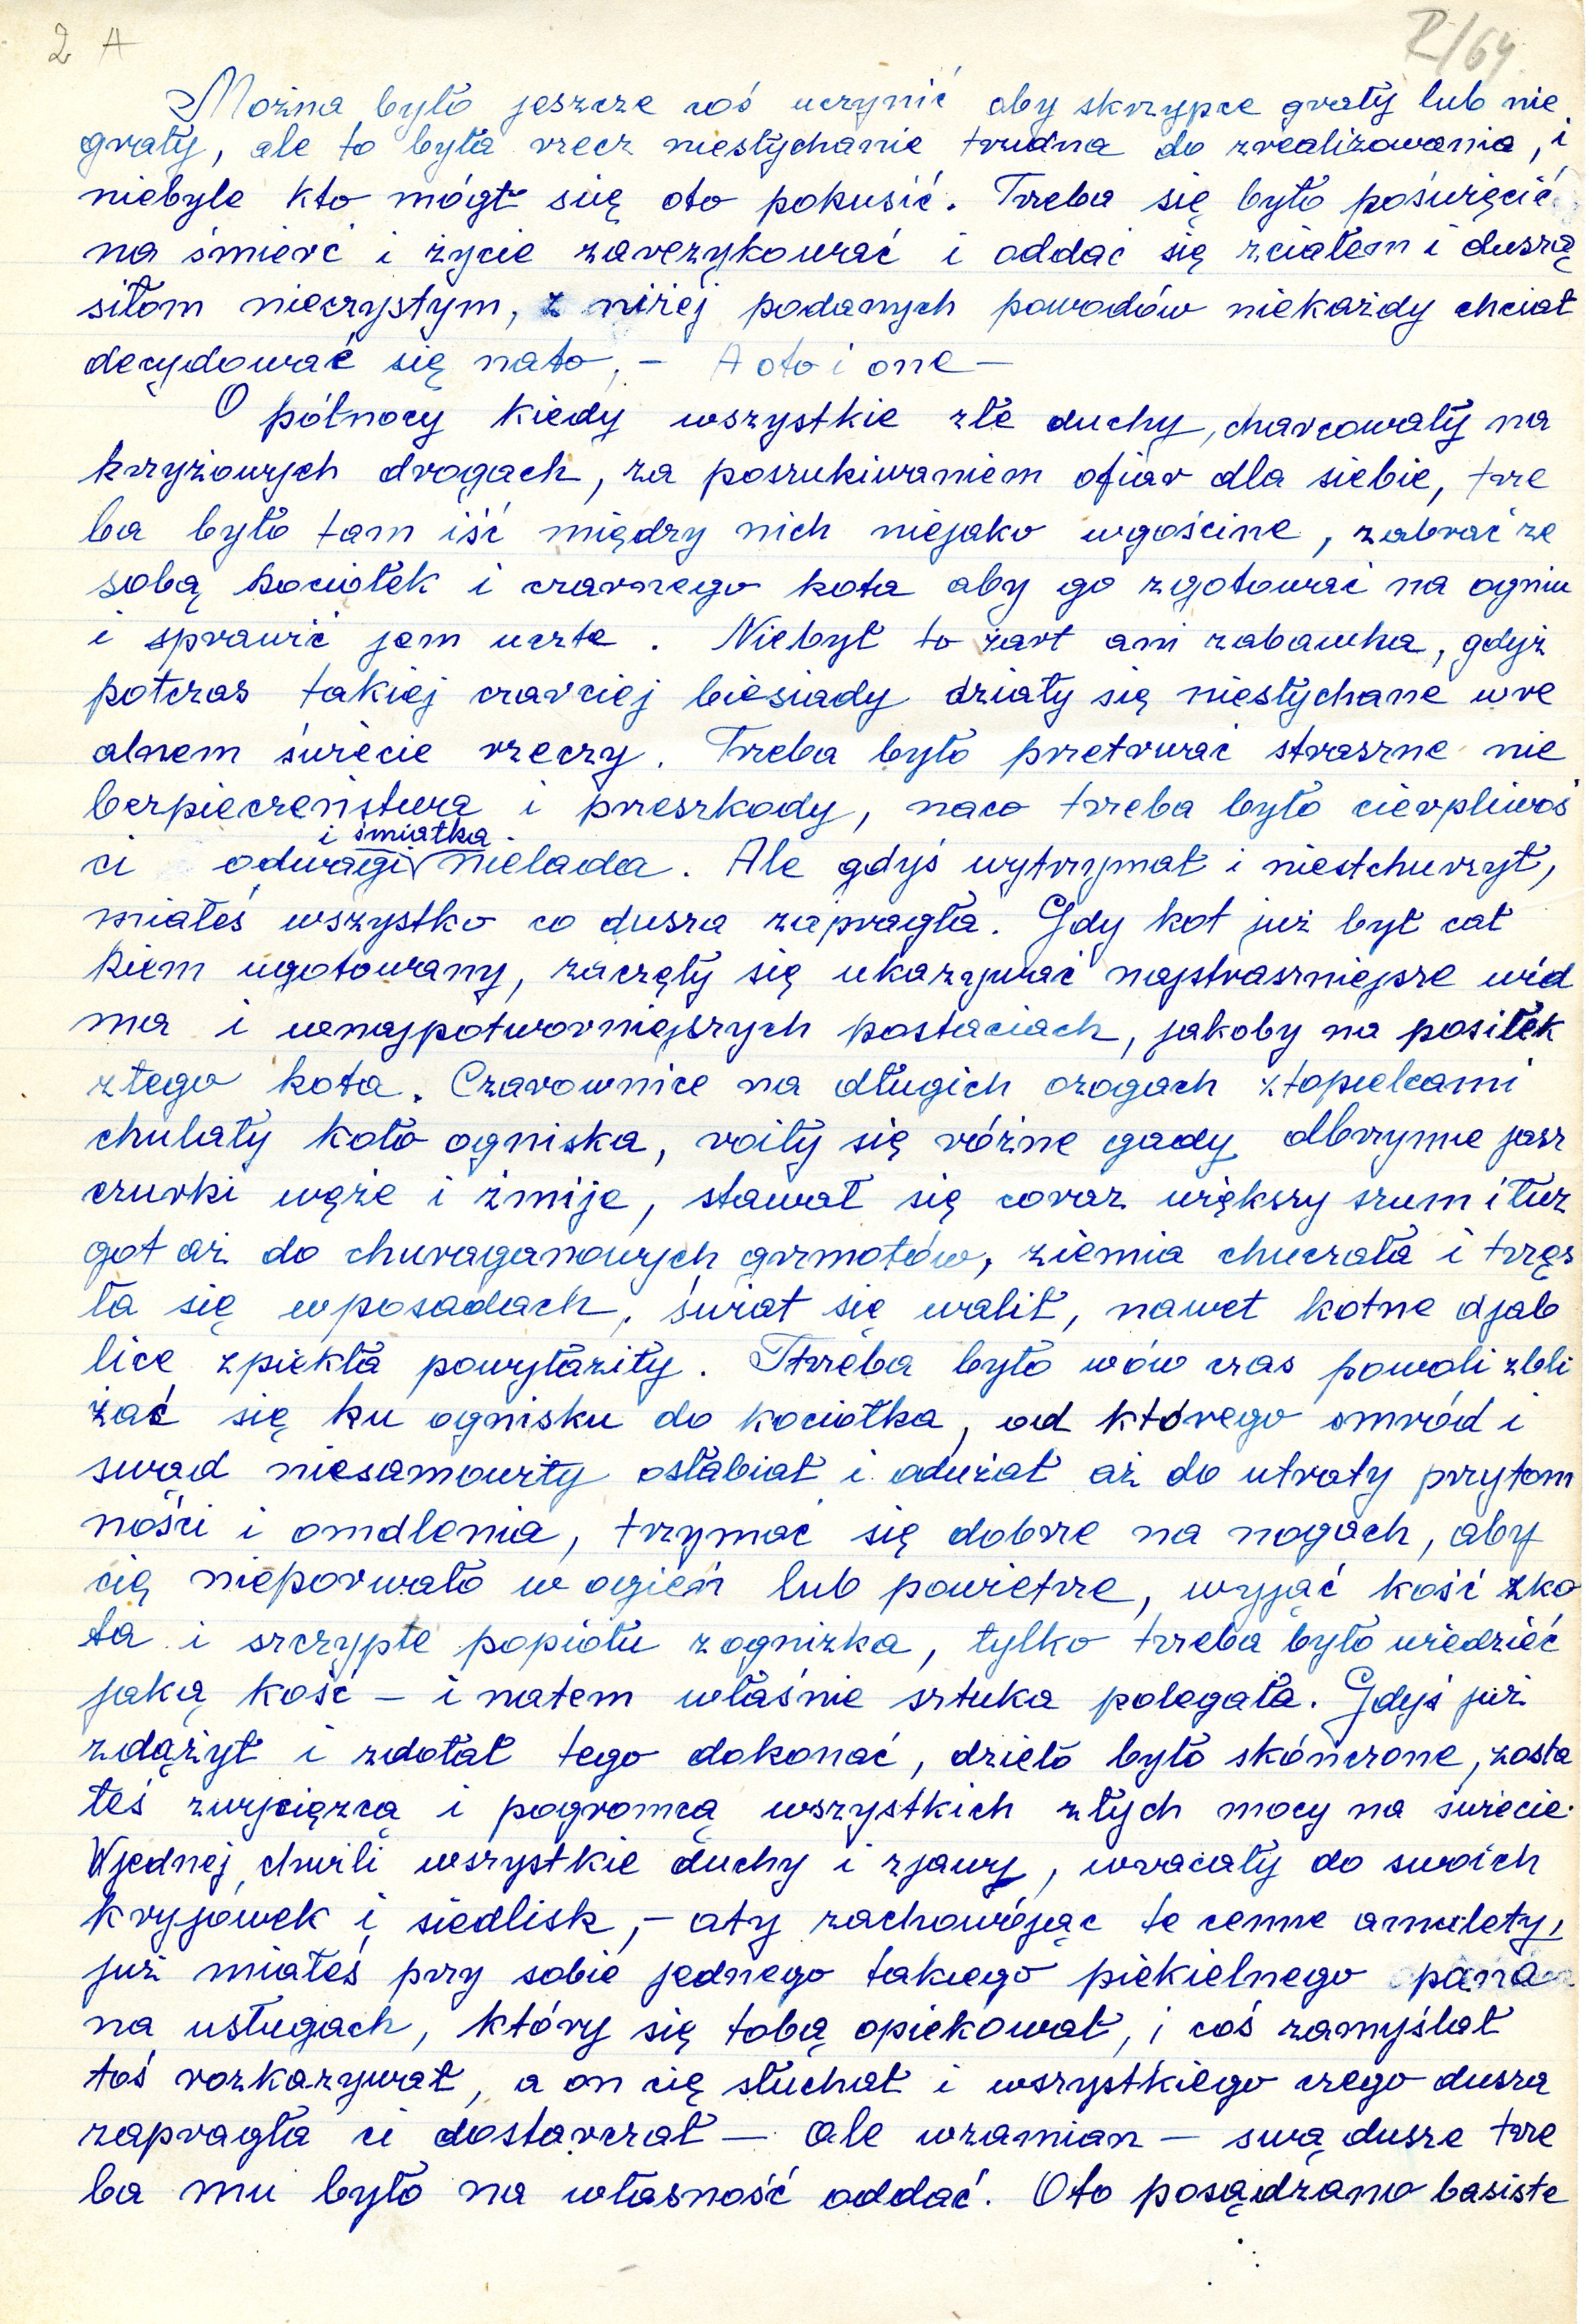 2 A
R/64
Można było jeszcze coś uczynić aby skrzypce grały lub nie
grały, ale to była rzecz niesłychanie trudna do zrealizowania, i
niebyle kto mógł się oto pokusić. Trzeba się było poświęcić
na śmierć i życie zaryzykować i oddać się zciałem i duszą
siłom nieczystym, z niżej podanych powodów niekażdy chciał
decydować się nato, – A oto i one –
O północy kiedy wszystkie złe duchy, charcowały na
krzyżowych drogach, za poszukiwaniem ofiar dla siebie, trze
ba było tam iść między nich niejako wgościne, zabrać ze
sobą kociołek i czarnego kota aby go zgotować na ogniu
i sprawić jem uczte. Niebył to żart ani zabawka, gdyż
potczas takiej czarciej biesiady działy się niesłychane wre
alnem świecie rzeczy. Trzeba było przetrwać straszne nie
bezpieczeństwa i przeszkody, naco trzeba było cierpliwoś
i śmiałka
ci odwagi nielada. Ale gdyś wytrzymał i niestchurzył,
miałeś wszystko co dusza zapragła. Gdy kot już był cał
kiem ugotowany, zaczęły się ukazywać najstraszniejsze wid
ma i wnajpotworniejszych postaciach, jakoby na posiłek
ztego kota. Czarownice na długich ozogach ztopielcami
chulały koło ogniska, roiły się różne gady olbrzymie jasz
czurki węże i żmije, stawał się coraz większy szum i tur
got aż do churaganowych grzmotów, ziemia chuczała i trzęs
ła się wposadach, świat się walił, nawet kotne djab
lice zpiekła powyłaziły. Trzeba było wów czas powoli zbli
żać się ku ognisku do kociołka, od którego smród i
swąd niesamowity osłabiał i odużał aż do utraty przytom
ności i omdlenia, trzymać się dobrze na nogach, aby
cię nieporwało w ogień lub powietrze, wyjąć kość zko
ta i szczypte popiołu zognizka, tylko trzeba było wiedzieć
jaką kość – i natem właśnie sztuka polegała. Gdyś już
zdążył i zdołał tego dokonać, dzieło było skończone, zosta
łeś zwycięzcą i pogromcą wszystkich złych mocy na świecie.
Wjednej chwili wszystkie duchy i zjawy, wracały do swoich
kryjówek i siedlisk, – aty zachowójąc te cenne amulety,
już miałeś przy sobie jednego takiego piekielnego pana
na usługach, który się tobą opiekował, i coś zamyślał
toś rozkazywał, a on cię słuchał i wszystkiego czego dusza
zapragła ci dostarczał – ale wzamian – swą dusze trze
ba mu było na własność oddać. Oto posądzano basiste